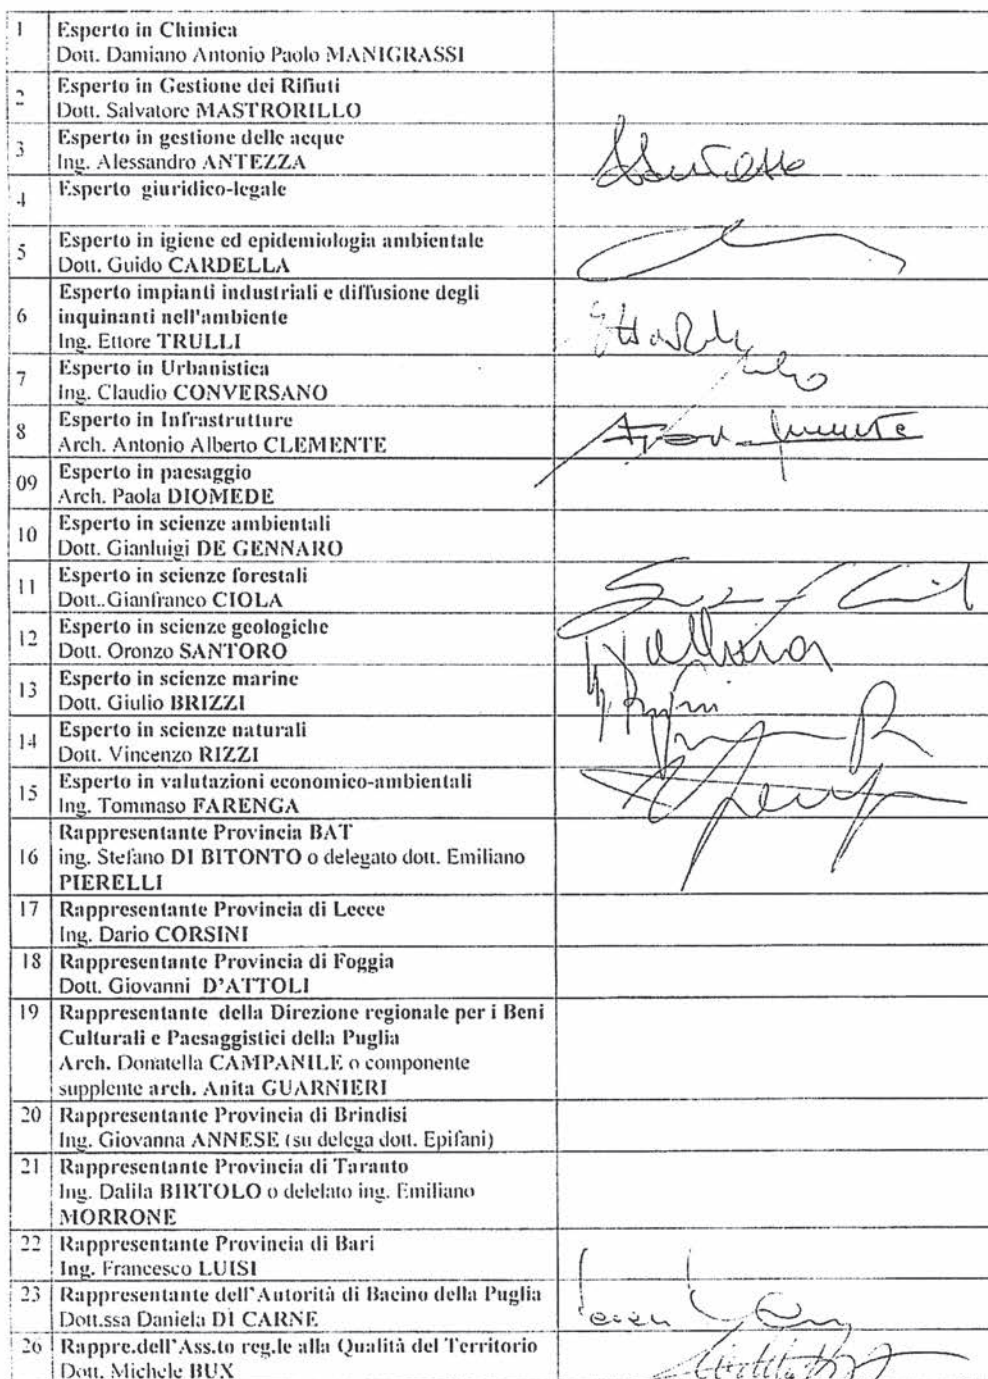 1 Esperto in Chimica
Dott. Damiano Antonio Paolo MANIGRASSI
2 Esperto in Gestione dei Rifiuti
Dott. Salvatore MASTRORILLO
3 Esperto in gestione delle acque
Ing. Alessandro ANTEZZA
4 Esperto giuridico-legale
5 Esperto in igiene ed epidemiologia ambientale
Dott. Guido CARDELLA
6 Esperto impianti industriali e diffusione degli
inquinanti nell'ambiente
Ing. Ettore TRULLI
7 Esperto in Urbanistica
Ing. Claudio CONVERSANO
8 Esperto in Infrastrutture
Arch. Antonio Alberto CLEMENTE
09 Esperto in paesaggio
Arch. Paola DIOMEDE
10 Esperto in scienze ambientali
Dott. Gianluigi DE GENNARO
11 Esperto in scienze forestali
Dott..Gianfranco CIOLA
12 Esperto in scienze geologiche
Dott. Oronzo SANTORO
13 Esperto in scienze marine
Dott. Giulio BRIZZI
14 Esperto in scienze naturali
Dott. Vincenzo RIZZI
15 Esperto in valutazioni economico-ambientali
Ing. Tommaso FARENGA
16 Rappresentante Provincia BAT
ing. Stefano DI BITONTO o delegato dott. Emiliano
PIERELLI
17 Rappresentante Provincia di Lecce
Ing. Dario CORSINI
18 Rappresentante Provincia di Foggia
Dott. Giovanni D'ATTOLI
19 Rappresentante della Direzione regionale per i Beni
Culturali e Paesaggistici della Puglia
Arch. Donatella CAMPANILE o componente
supplente arch. Anita GUARNIERI
20 Rappresentante Provincia di Brindisi
Ing. Giovanna ANNESE (su delega dott. Epifani)
21 Rappresentante Provincia di Taranto
Ing. Dalila BIRTOLO o delelato ing. Emiliano
MORRONE
22 Rappresentante Provincia di Bari
Ing. Francesco LUISI
23 Rappresentante dell'Autorità di Bacino della Puglia
Dott.ssa Daniela DI CARNE
26 Rappre.dell'Ass.to reg.le alla Qualità del Territorio
Dott. Michele BUX